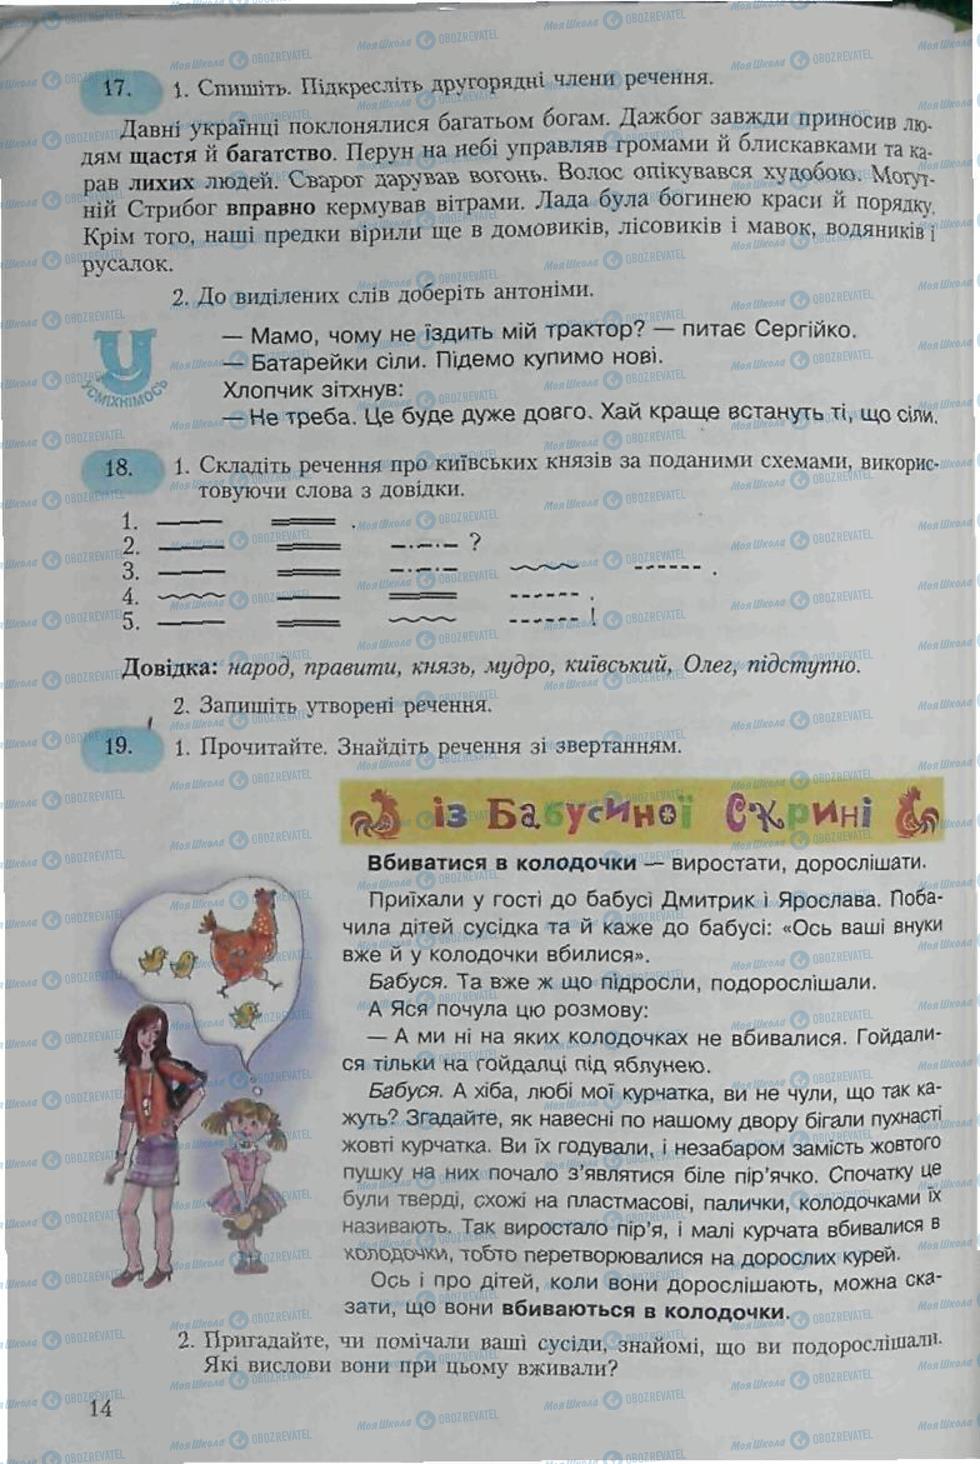 17. 1. Спишіть. Підкресліть другорядні члени речення.
Давні українці поклонялися багатьом богам. Дажбог завжди приносив лю-
дям щастя й багатство. Перун на небі управляв громами й блискавками та ка-
рав лихих людей. Сварог дарував вогонь. Волос опікувався худобою. Могут-
ній Стрибог вправно кермував вітрами. Лада була богинею краси й порядку.
Крім того, наші предки вірили ще в домовиків, лісовиків і мавок, водяників і
русалок.
2. До виділених слів доберіть антоніми.
УСМІХНІМОСЬ
— Мамо, чому не їздить мій трактор? — питає Сергійко.
— Батарейки сіли. Підемо купимо нові.
Хлопчик зітхнув:
— Не треба. Це буде дуже довго. Хай краще встануть ті, що сіли.
18. 1. Складіть речення про київських князів за поданими схемами, викорис-
товуючи слова з довідки.
1. .
2. ?
3. .
4. .
5. !
Довідка: народ, правити, князь, мудро, київський, Олег, підступно.
2. Запишіть утворені речення.
19. 1. Прочитайте. Знайдіть речення зі звертанням.
із Бабусиної Скрині
Вбиватися в колодочки — виростати, дорослішати.
Приїхали у гості до бабусі Дмитрик і Ярослава. Поба-
чила дітей сусідка та й каже до бабусі: «Ось ваші внуки
вже й у колодочки вбилися».
Бабуся. Та вже ж що підросли, подорослішали.
А Яся почула цю розмову:
— А ми ні на яких колодочках не вбивалися. Гойдали-
ся тільки на гойдалці під яблунею.
Бабуся. А хіба, любі мої курчатка, ви не чули, що так ка-
жуть? Згадайте, як навесні по нашому двору бігали пухнасті
жовті курчатка. Ви їх годували, і незабаром замість жовтого
пушку на них почало з'являтися біле пір'ячко. Спочатку це
були тверді, схожі на пластмасові, палички, колодочками їх
називають. Так виростало пір'я, і малі курчата вбивалися в
колодочки, тобто перетворювалися на дорослих курей.
Ось і про дітей, коли вони дорослішають, можна ска-
зати, що вони вбиваються в колодочки.
2. Пригадайте, чи помічали ваші сусіди, знайомі, що ви подорослішали.
Які вислови вони при цьому вживали?
14
Моя Школа OBOZREVATEL